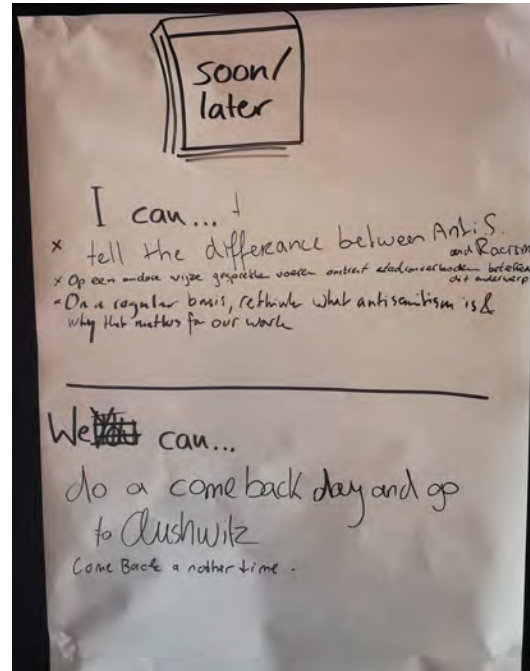 soon/
later
I can...
x tell the differance between Anti S.
and Racism
x Op een andere wijze gesprekken voeren omtrent stadionverboden betreffen
dit onderwerp
- On a regular basis, rethink what antisemitism is &
why that matters for our work
We can...
do a come back day and go
to Aushwitz
Come Back a nother time.